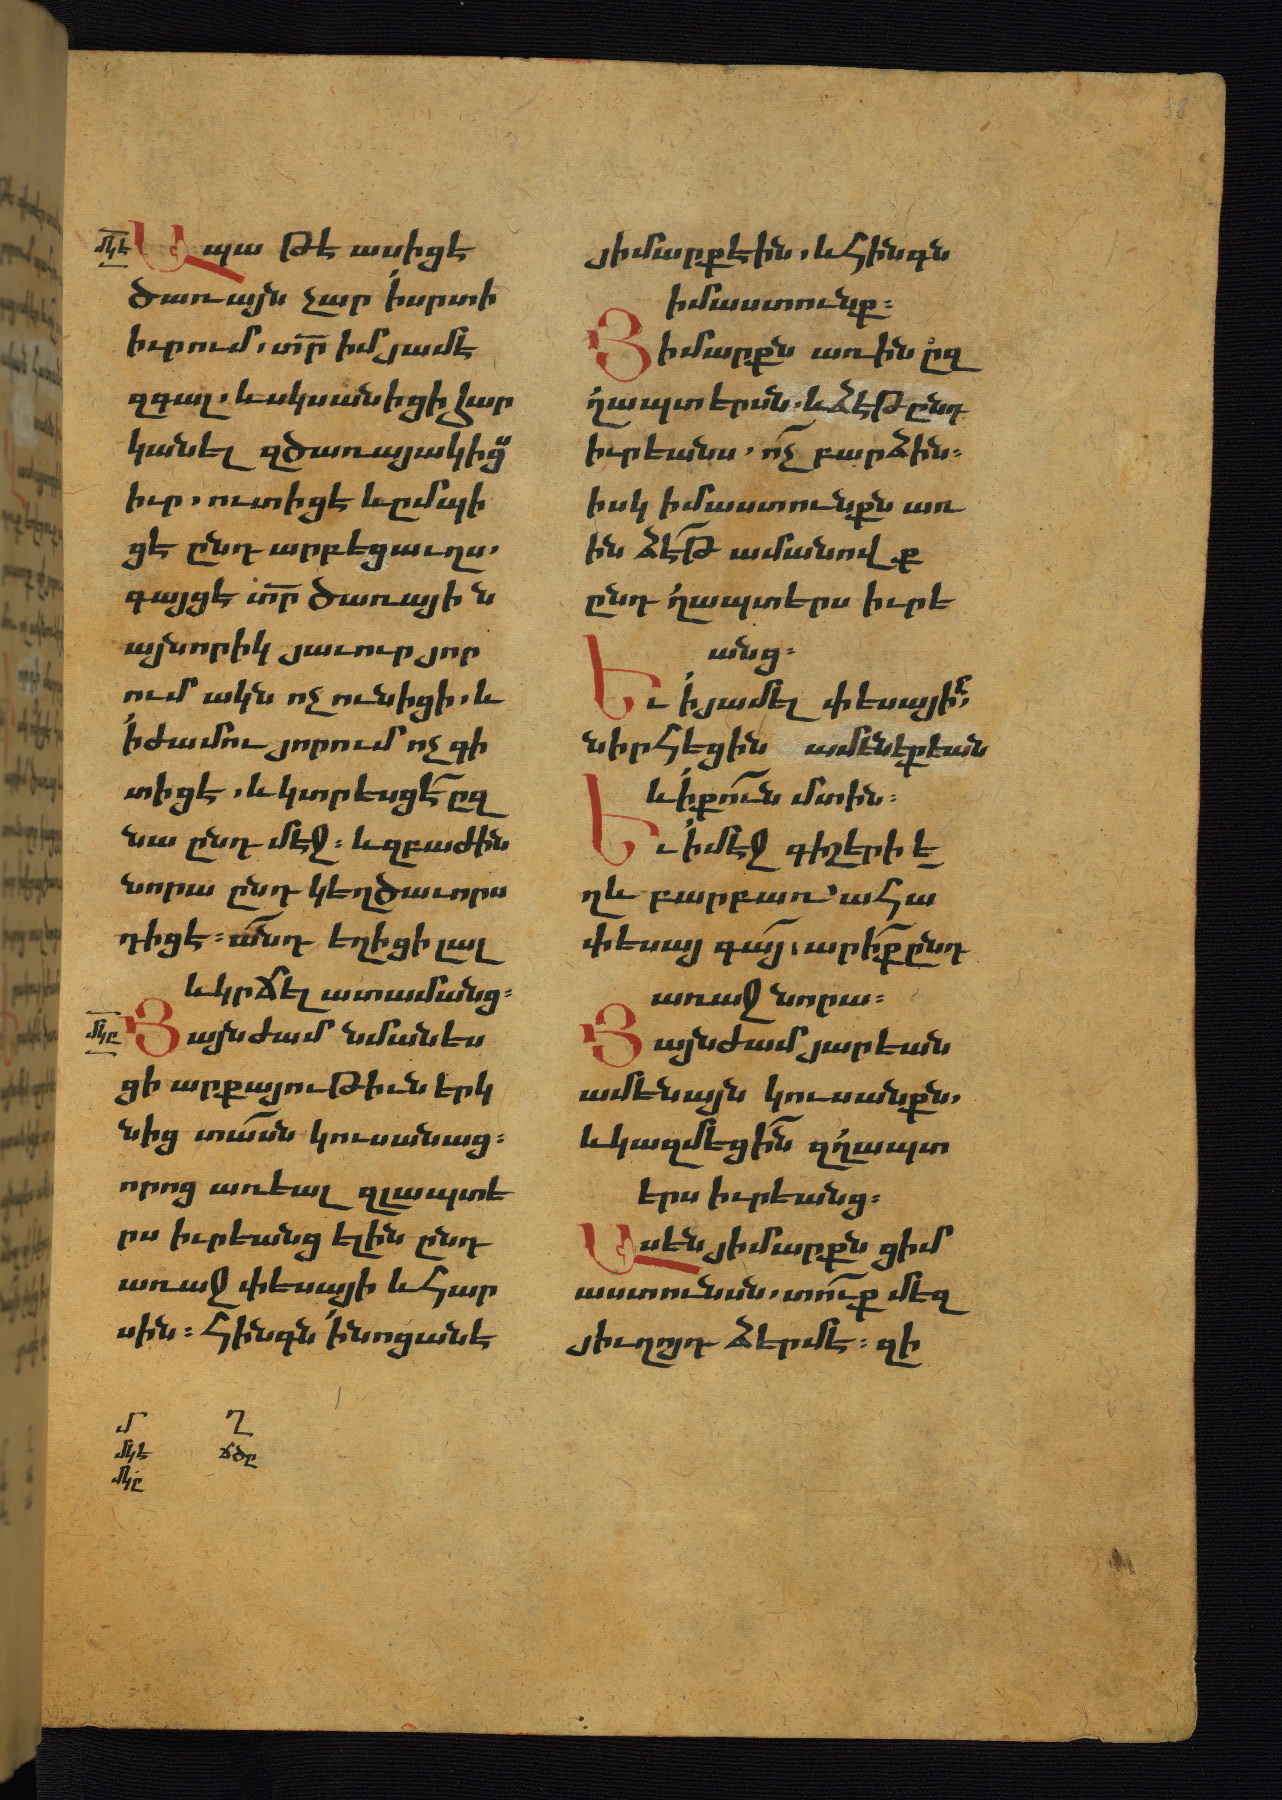 38
մկէ Ապա թէ ասիցէ
ծառայն չար ՛ի սրտի
իւրում, տր իմ յամէ
զգալ, և սկսանիցի հար
կանել զծառայակից
իւր, ուտիցէ և ըմպի
ցէ ընդ արբեցաւղս,
գայցէ տր ծառային
այնորիկ յաւուր յոր
ում ակն ոչ ունիցի, և
՛ի ժամու յորում ոչ գի
տիցէ, և կտրեսցէ ըզ
նա ընդ մէջ։ և զբաժին
նորա ընդ կեղծաւորս
դիցէ։ անդ եղիցի լալ
և կրճել ատամանց։
մկը Յայնժամ նմանես
ցի արքայութիւն երկ
նից տասն կուսանաց։
որոց առեալ զլապտե
րս իւրեանց ելին ընդ
առաջ փեսայի և հար
սին։ հինգն ՛ի նոցանէ
մ ղ
մկէ ճծը
մկը
յիմարք էին, և հինգն
իմաստունք։
Յիմարքն առին ըզ
ղապտերսն, և ձէթ ընդ
իւրեանս, ոչ բարձին։
իսկ իմաստունքն առ
ին ձէթ ամանովք
ընդ ղապտերս իւրե
անց։
Եւ ՛ի յամել փեսային,
նիրհեցին ամենեքեան
և ՛ի քուն մտին։
Եւ ՛ի մէջ գիշերի ե
ղև բարբառ՝ ահա
փեսայ գայ, արիք ընդ
առաջ նորա։
Յայնժամ յարեան
ամենայն կուսանքն,
և կազմեցին զղապտ
երս իւրեանց։
Ասեն յիմարքն ցիմ
աստունսն, տուք մեզ
յիւղոյդ ձերմէ։ զի